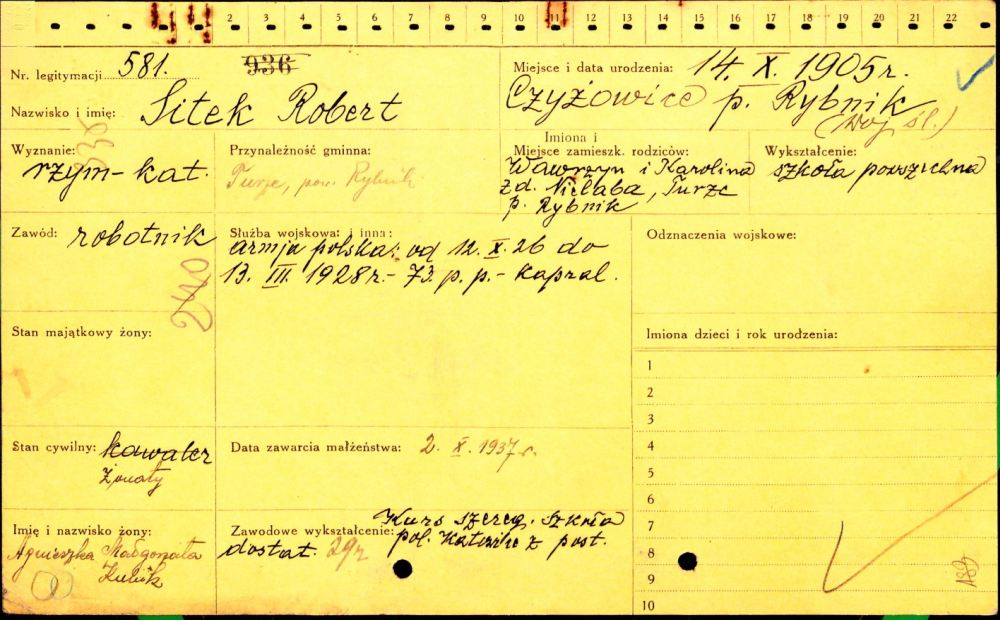 2 3 4 5 6 7 8 9 10 11 12 13 14 15 16 17 18 19 20 21 22
Nr. legitymacji 581. 936
Nazwisko i imię: Sitek Robert
Miejsce i data urodzenia: 14. X. 1905 r.
Czyżowice p. Rybnik
(woj. śl.)
336
Wyznanie:
rzym-kat.
Przynależność gminna:
Turze, pow. Rybnik
Imiona i
Miejsce zamieszk. rodziców:
Wawrzyn i Karolina
z d. Nielaba, Turze
p. Rybnik
Wykształcenie:
szkoła powszechna
Zawód: robotnik
240
Służba wojskowa: i inna:
armja polska: od 12. X. 26 do
13. III. 1928 r. - 73. p. p. - kapral.
Odznaczenia wojskowe:
Stan majątkowy żony:
Imiona dzieci i rok urodzenia:
1
2
3
4
5
6
7
8
9
10
Stan cywilny: kawaler
żonaty
Data zawarcia małżeństwa: 2. X. 1937 r.
Imię i nazwisko żony:
Agnieszka Małgorzata
Zawodowe wykształcenie: Kurs szereg. szkoła
pol. Katowice z post.
dostat. 29 r